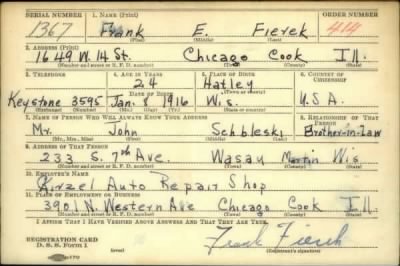 SERIAL NUMBER 1. NAME (Print) ORDER NUMBER
1367 Frank E. Fierek 414
(First) (Middle) (Last)
2. ADDRESS (Print)
1649 W. 14 St. Chicago Cook Ill.
(Number and street or R. F. D. number) (Town) (County) (State)
3. TELEPHONE 4. AGE IN YEARS 5. PLACE OF BIRTH 6. COUNTRY OF CITIZENSHIP
24 Hatley
DATE OF BIRTH (Town or county)
Keystone 3595 Jan. 8 1916 Wis. U.S.A.
(Exchange) (Number) (Mo.) (Day) (Yr.) (State or country)
7. NAME OF PERSON WHO WILL ALWAYS KNOW YOUR ADDRESS 8. RELATIONSHIP OF THAT PERSON
Mr. John Schbleski Brother-in-Law
(Mr., Mrs., Miss) (First) (Middle) (Last)
9. ADDRESS OF THAT PERSON
233 S. 7th Ave. Wasau Wis
(Number and street or R. F. D. number) (Town) (County) (State)
10. EMPLOYER'S NAME
Kirzel Auto Repair Shop
11. PLACE OF EMPLOYMENT OR BUSINESS
3901 N. Western Ave Chicago Cook Ill.
(Number and street or R. F. D. number) (Town) (County) (State)
I AFFIRM THAT I HAVE VERIFIED ABOVE ANSWERS AND THAT THEY ARE TRUE.
REGISTRATION CARD
D. S. S. Form 1
(Registrant's signature)